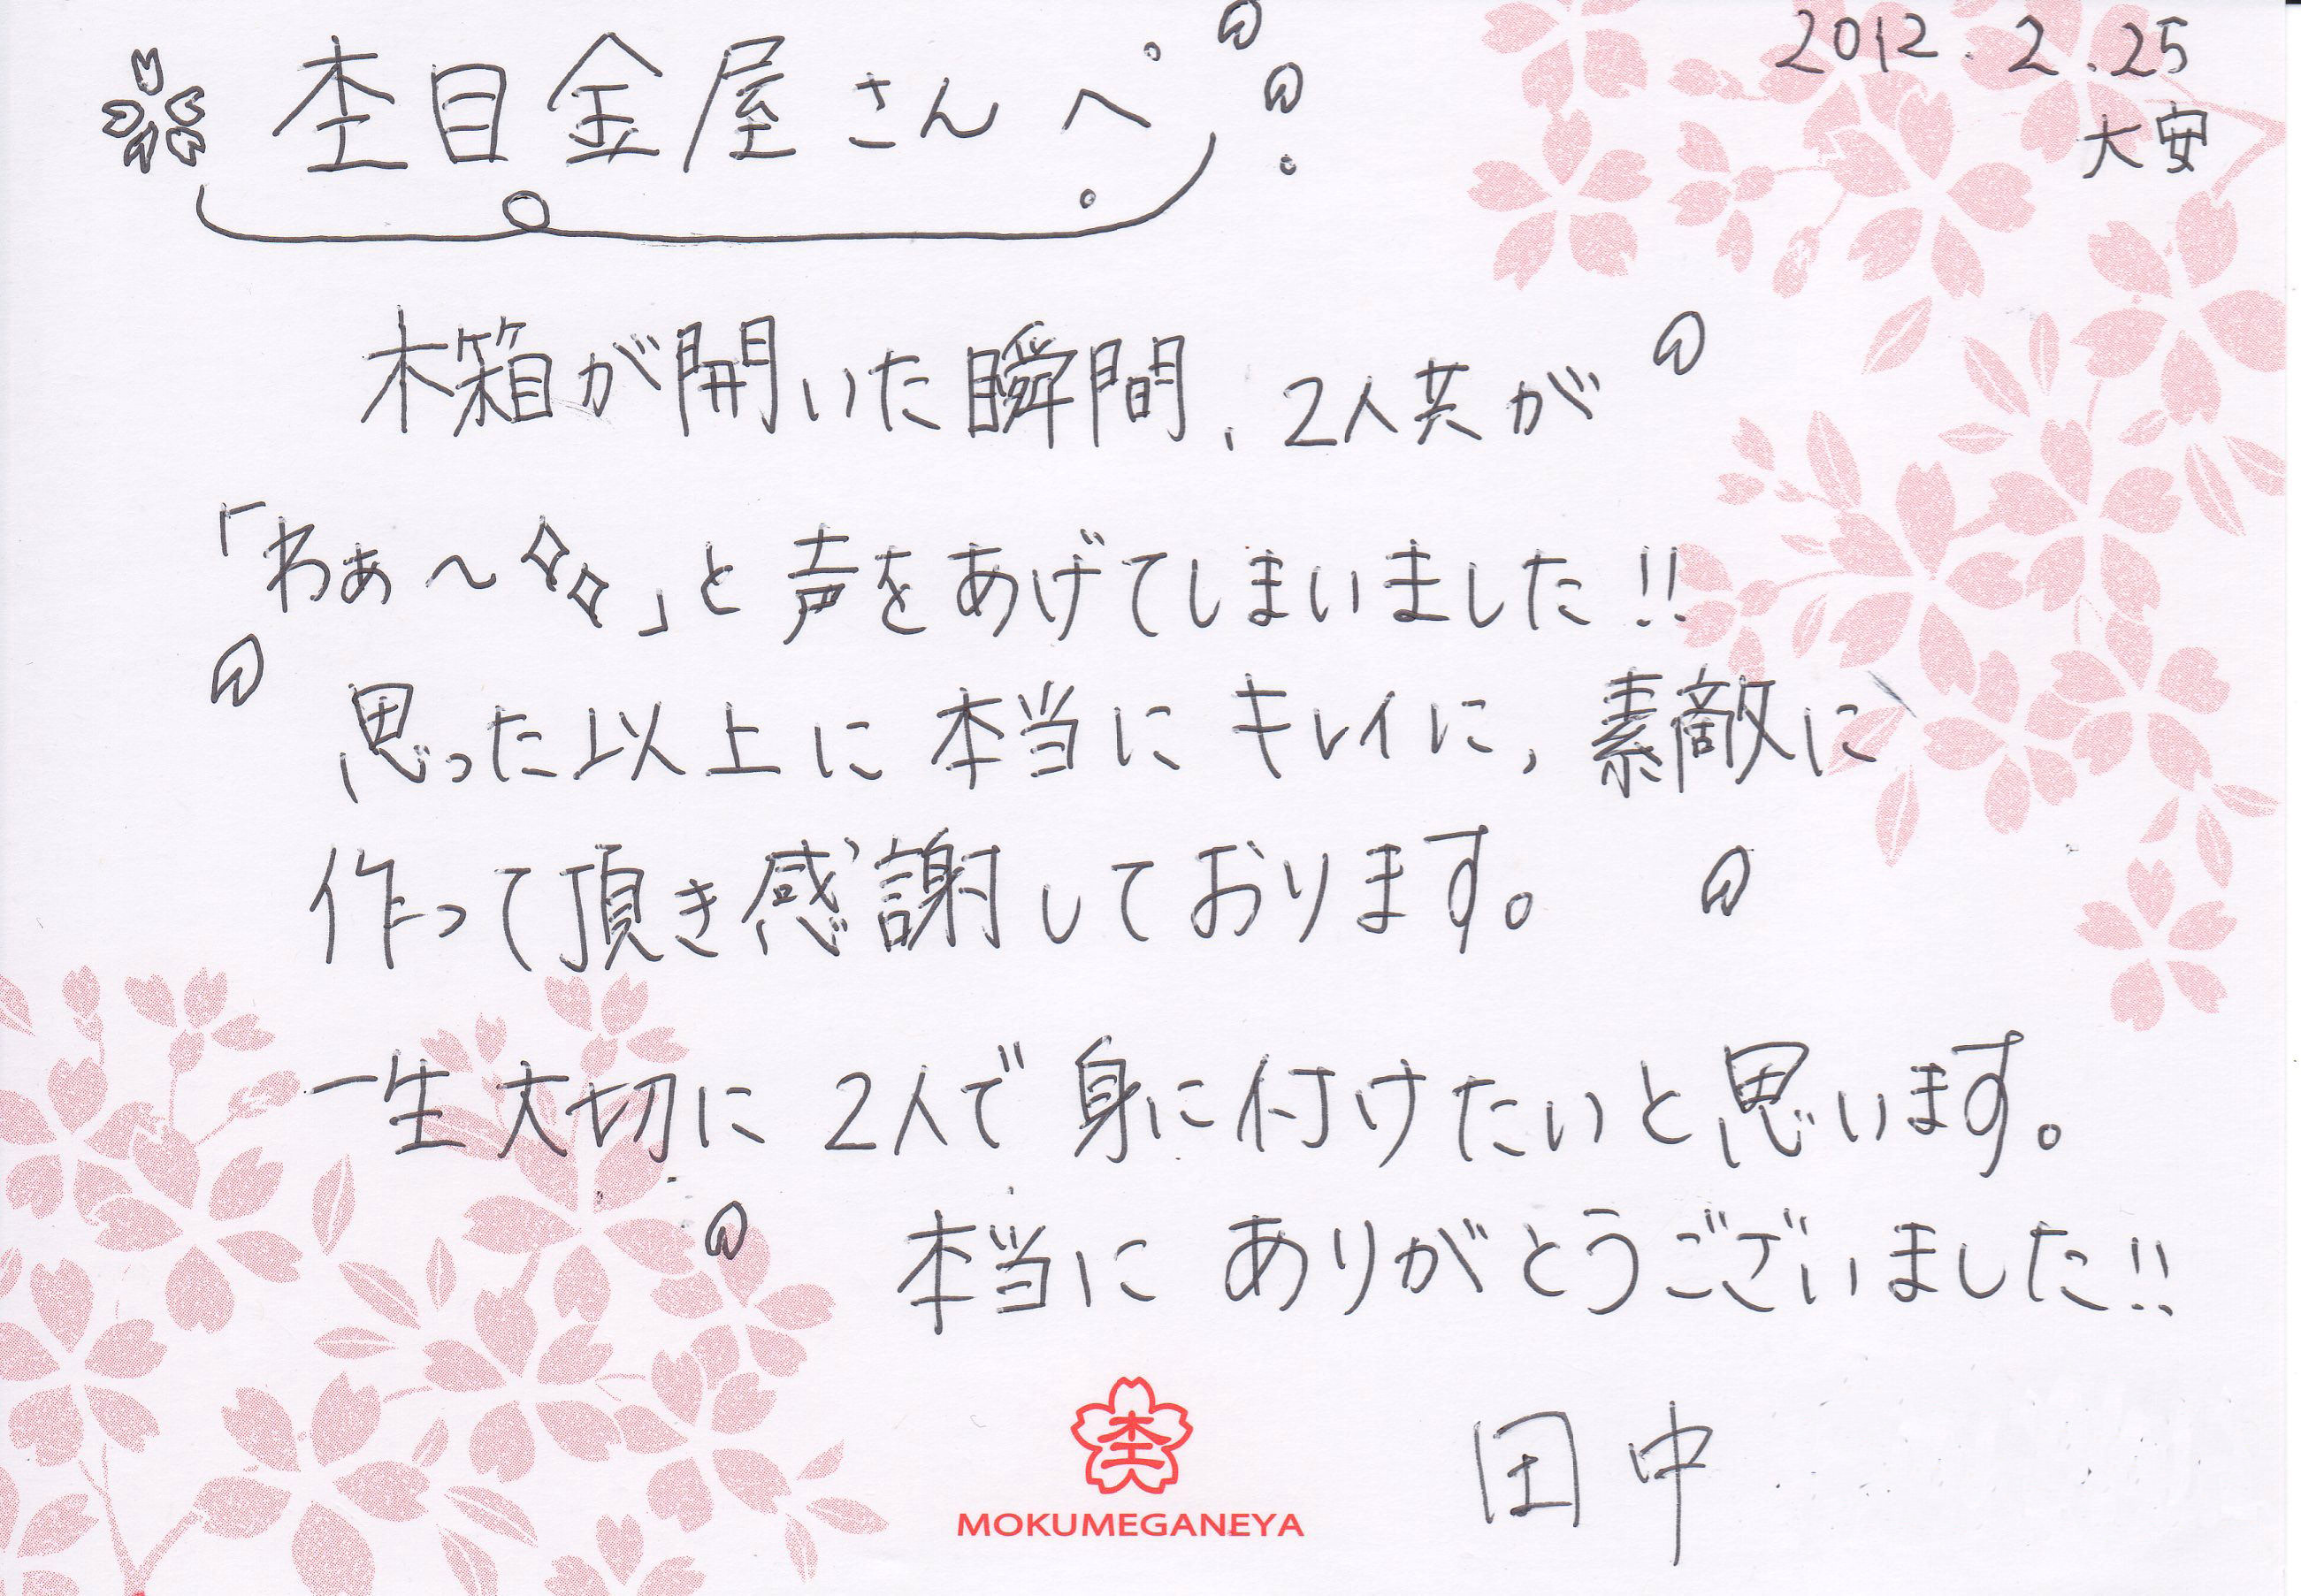 2012.2.25
大安
杢目金屋さんへ
木箱が開いた瞬間、2人共が
「わぁ〜」と声をあげてしまいました!!
思った以上に本当にキレイに、素敵に
作って頂き感謝しております。
一生大切に2人で身に付けたいと思います。
本当にありがとうございました!!
杢
MOKUMEGANEYA
田中